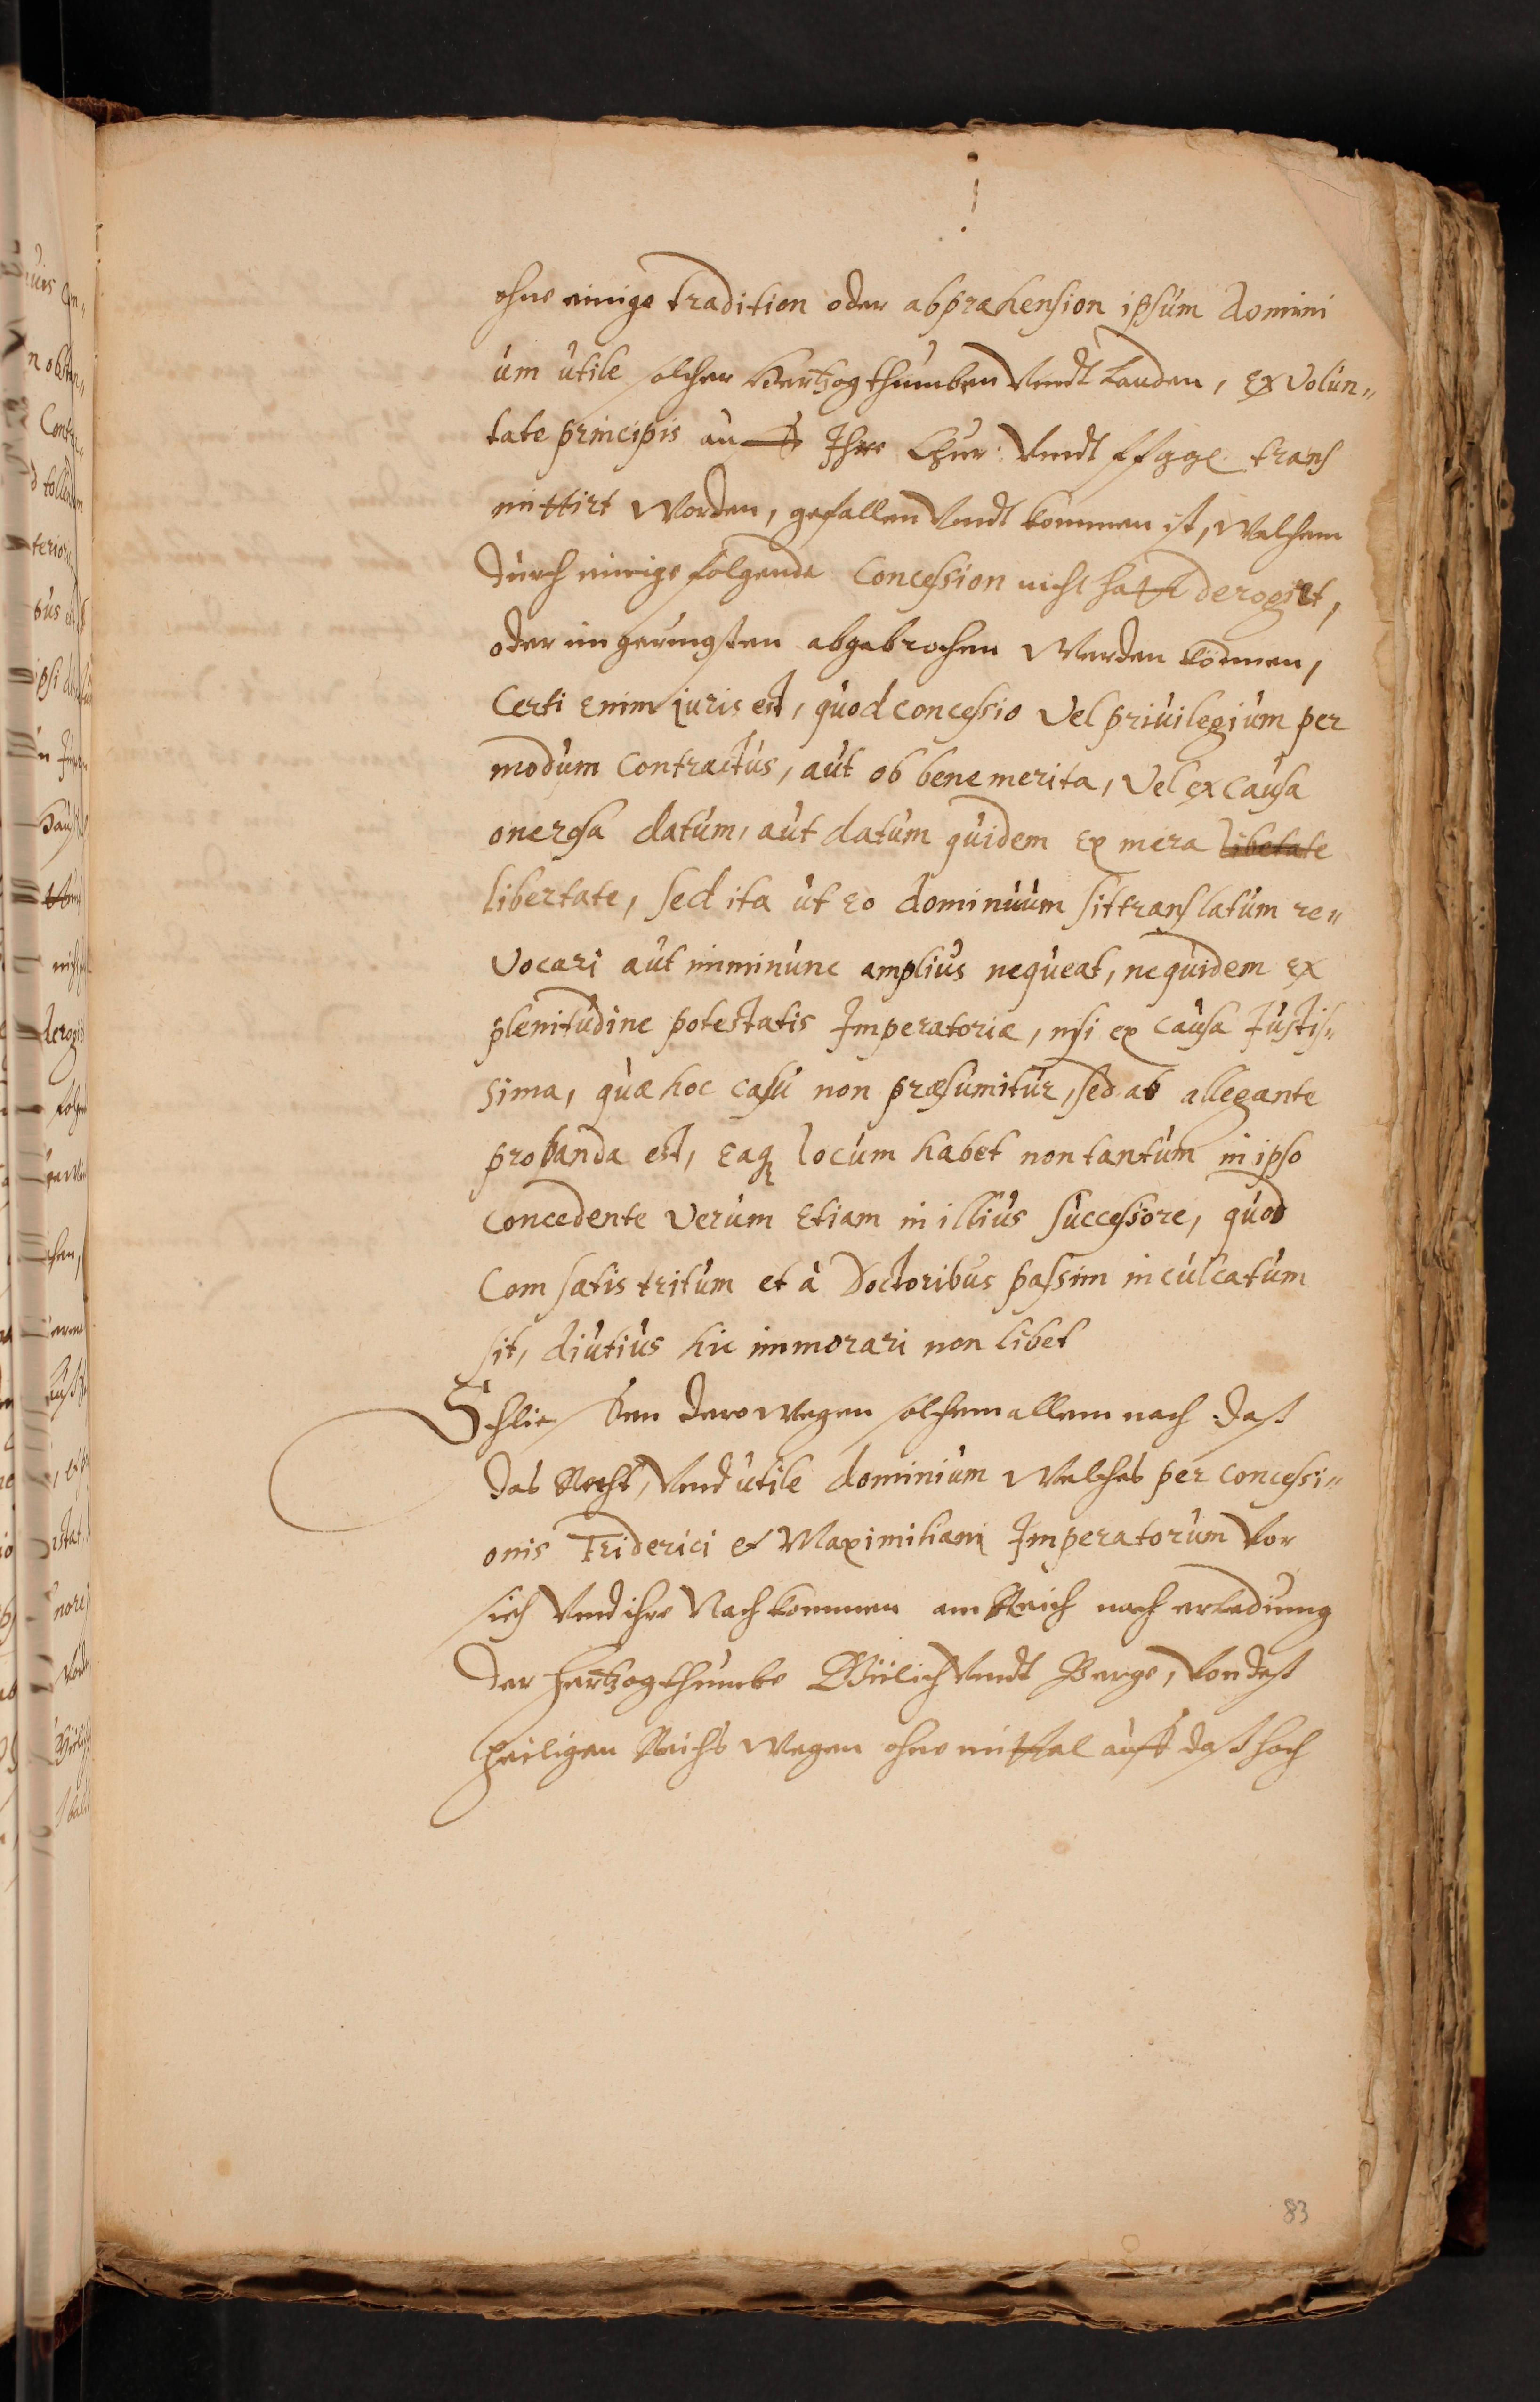 ohne einige tradition oder abprahension ipsum domini
um utile solcher Hertzogthumben vndt Landen, ex Volun„
tate principis auff Ihre Chur: vndt ffggl. trans
mittirt worden, gefallen vndt kommen ist, welchem
durch einige folgende Concession nicht hatt derogirt,
oder im geringsten abgebrochen werden können,
Certi enim juris est, quod concessio vel priuilegium per
modum Contractus, aut ob bene merita, vel ex causa
onerosa datum, aut datum quidem ex mera libetate
libertate, sed ita ut eo dominium sit translatum re„
vocari aut imminunc amplius nequeat, ne quidem ex
plenitudine potestatis Imperatoriæ, nisi ex causa Justis„
sima, quæ hoc casu non præsumitur, sed ab allegante
probanda est, eaq locum habet non tantum in ipso
Concedente verum etiam in illius successore, quod
Com satis tritum et à Doctoribus passim inculcatum
sit, diutius hic immorari non libet
Schliessen derowegen solchem allem nach daß
das Recht, vnd utile dominium welches per concessi„
onis Friderici et Maximiliani Imperatorum vor
sich vnd ihre Nachkommen am Reich nach erledigung
der Hertzogthumbe Gülich vndt Berge, von deß
heiligen Reichs wegen ohne mittel auff daß hoch
83